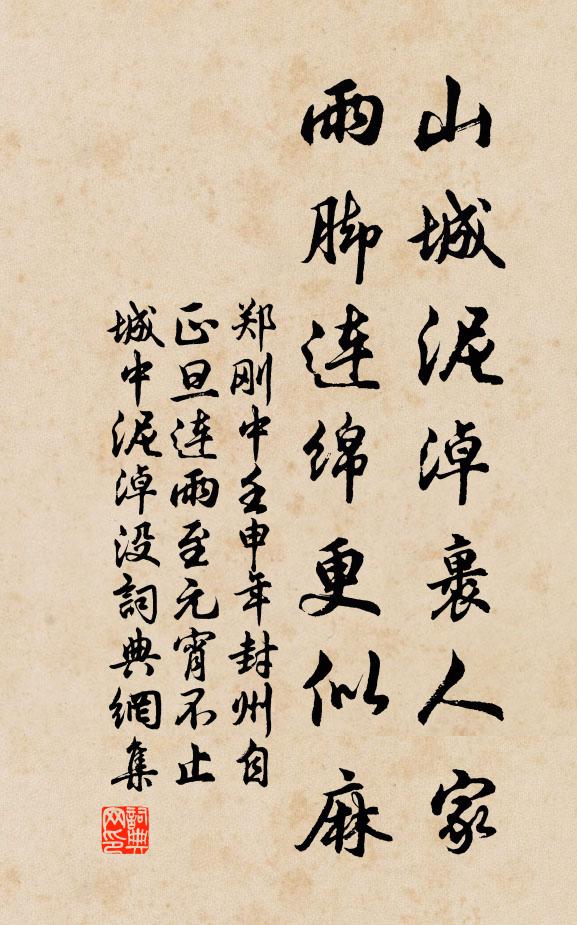 山城泥淖裹人家
雨脚连绵更似麻
郑刚中壬申年封州自
正旦连雨至元宵不止
城中泥淖没詞典網集
詞典网印